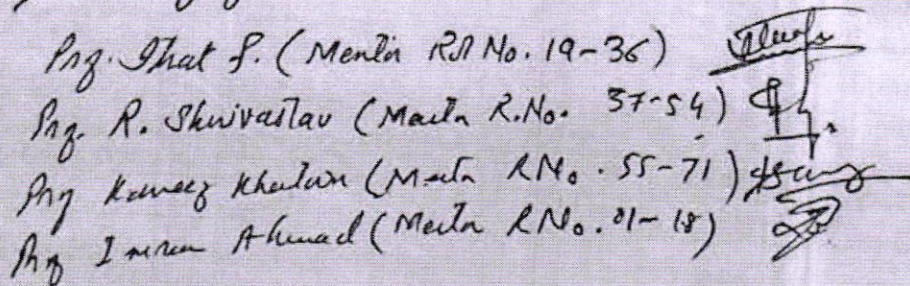 Prof. Ihat S. (Mentor Roll No. 19-36)
Prof. R. Shrivastav (Mentor R.No. 37-54)
Prof Kaneez Khatun (Mentor RNo. 55-71)
Prof Imran Ahmad (Mentor RNo. 01-18)